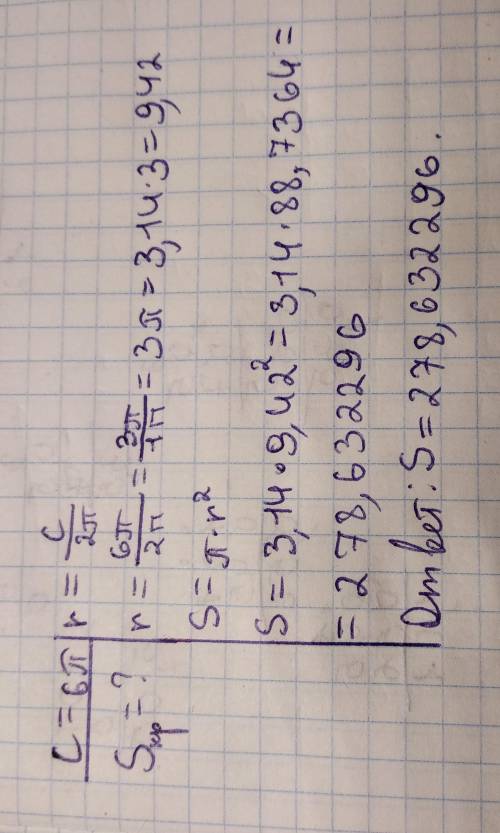 C = 6π
Sкр = ?
r = C/2π
r = 6π/2π = 3π/1π = 3π = 3,14 · 3 = 9,42
S = π · r²
S = 3,14 · 9,42² = 3,14 · 88,7364 =
= 278,632296
Ответ: S = 278,632296.